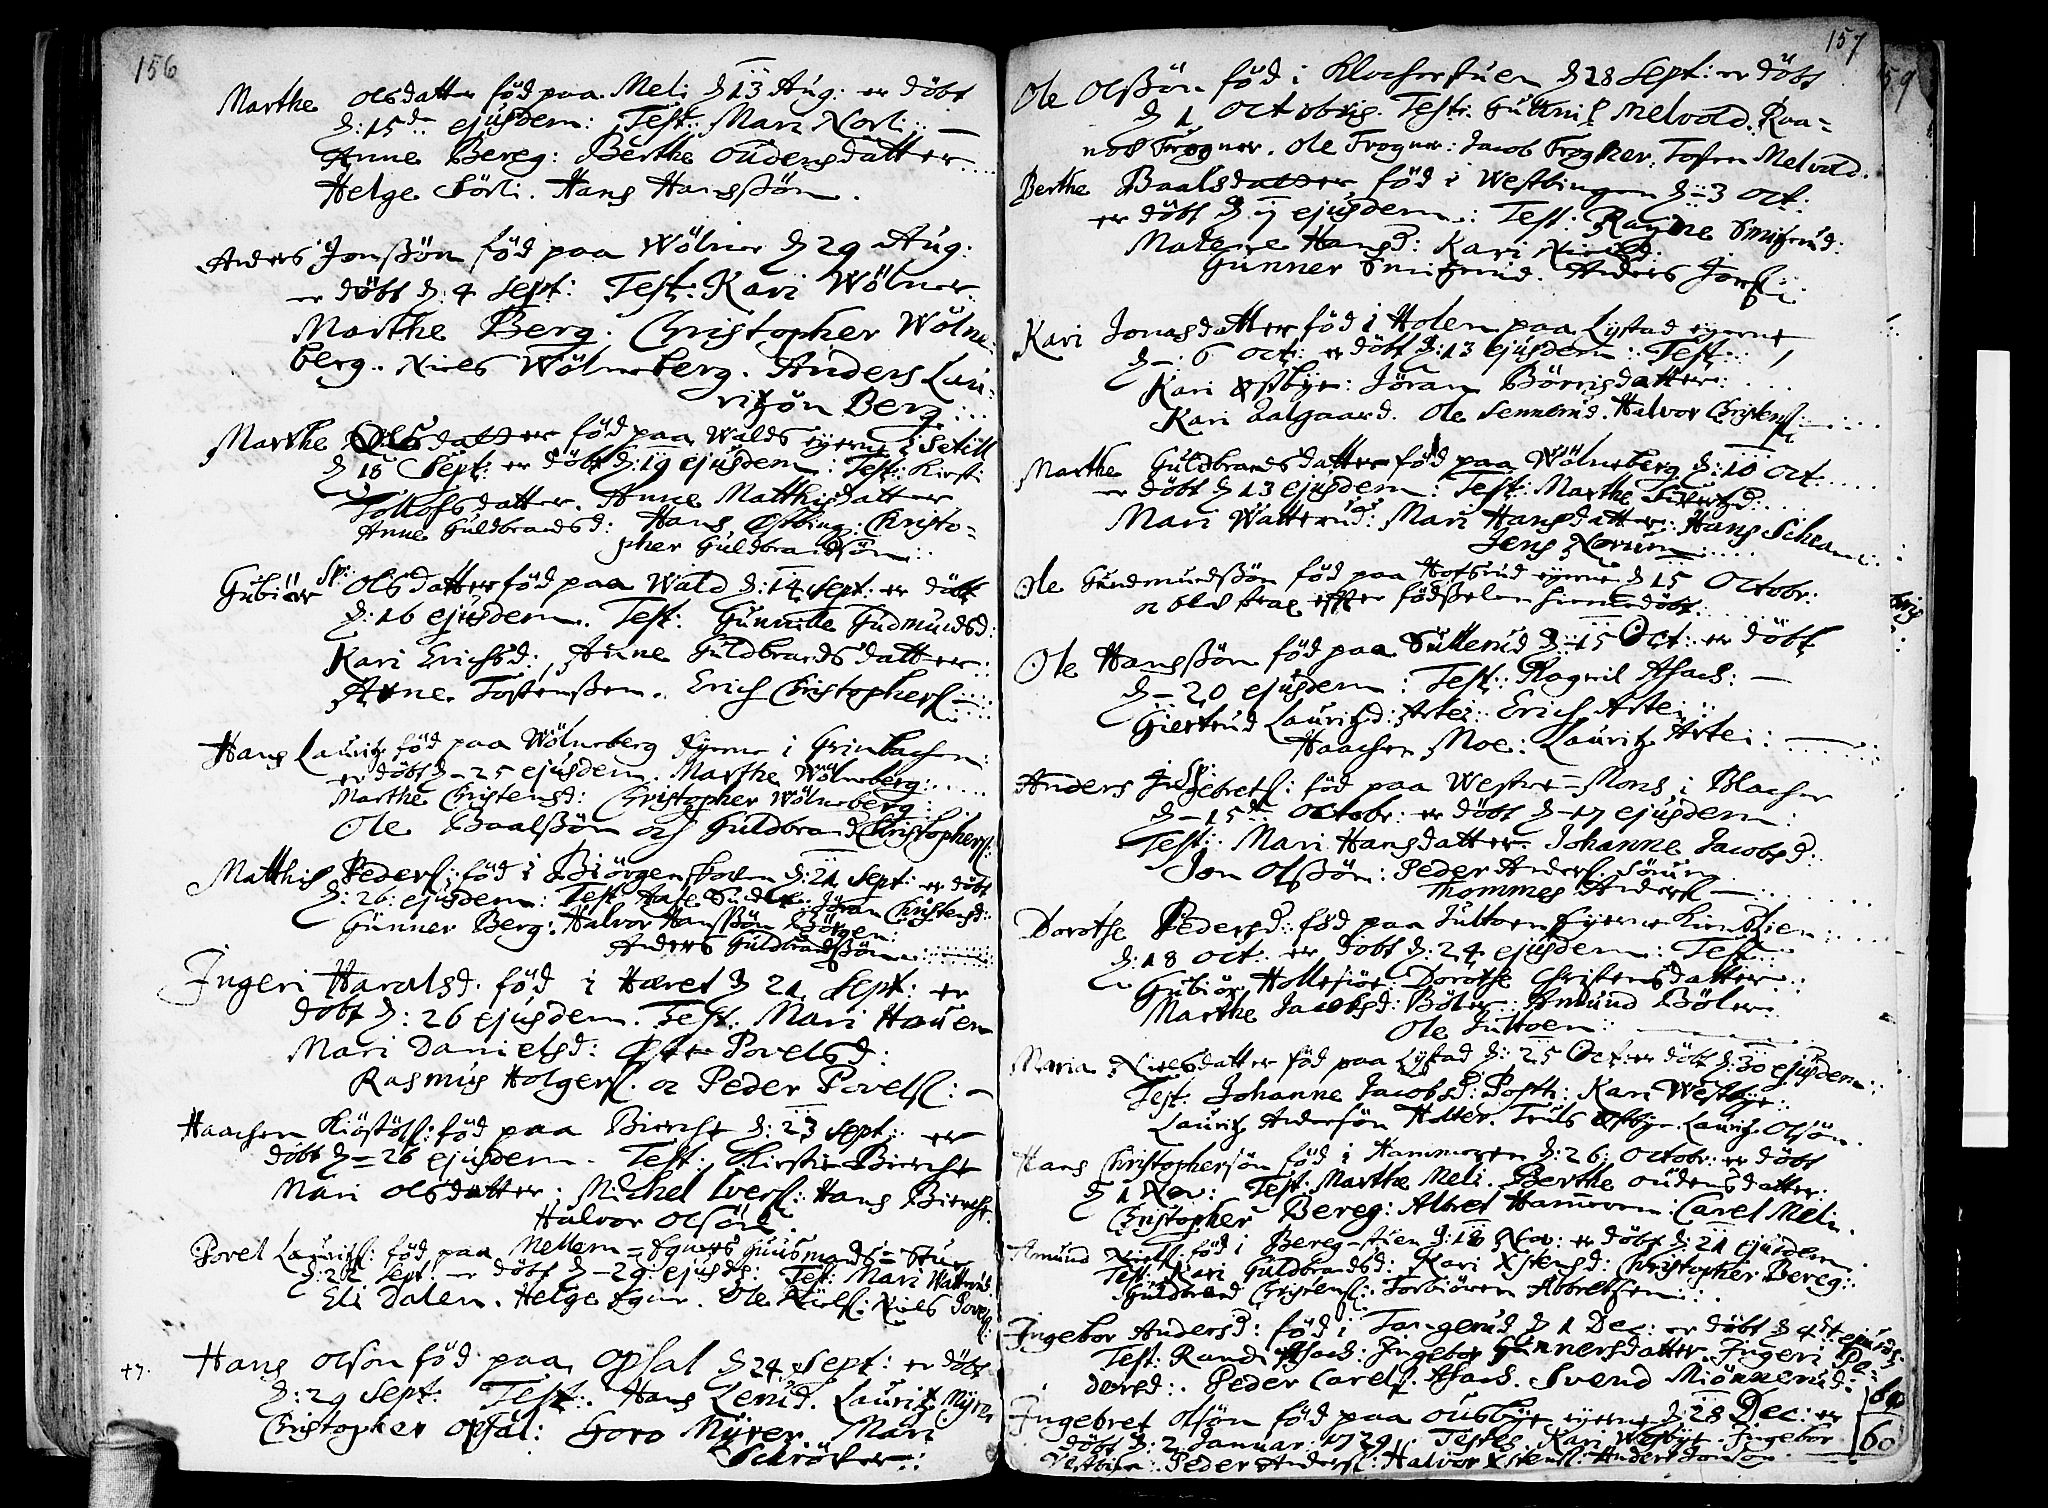 156
Marthe Olsdatter föd paa Meli d: 13 Aug: er döbt
d: 15de ejusdem: Test: Mari Norli: —
Anne Bereg: Berthe Oudensdatter
Helge Sörli. Hans Hanssön.
Anders Jonssön föd paa Wölner d 29 Aug:
er döbt d: 4 Sept: Test: Kari Wölner.
Marthe Berg. Christopher Wölne-
berg. Niels Wölneberg. Anders Lau-
ritzön Berg:
Marthe Olsdatter föd paa Walds eyerne i
d 18 Sept: er döbt d: 19 ejusdem: Test: Kirsti
Tollofsdatter. Anne Matthisdatter
Anne Guldbrandsd: Hans Østbing: Christo-
pher Guldbrandsön:
Gubiör Sp: Olsdatter föd paa Wald d: 14 Sept: er döbt
d: 16 ejusdem. Test: Gunnille Gudmundsd:
Kari Erichsd: Anne Guldbrandsdatter:
Arne Tostenssen. Erich Christophers:
Hans Lauritz: föd paa Wölneberg Eyerne i Grinbachen:
er döbt d-25 ejusdem. Marthe Wölneberg:
Marthe Christensd: Christopher Wölneberg:
Ole Baalssön och Guldbrand Christophers:
Matthis Peders: föd i Biörgen d: 21 Sept: er döbt
d: 26: ejusdem: Test: Jöran Christensd:
Gunner Berg: Halvor Hanssön Börgen:
Anders Guldbrandssön
Ingeri Haralsd: föd i Haret d 21 Sept: er
döbt d: 26 ejusdem. Test: Mari Hauen
Mari Danielsd: Povelsd:
Rasmus Holgers. oc Peder Povels: —
Haachen Kiöstöls: föd paa Bierche d: 23 Sept: er
döbt d=26 ejusdem. Test: Kirstie Bierche
Mari Olsdatter: Michel Ivers: Hans Bierche.
Halvor Olsön.
Povel Lauritz: föd paa Mellem=Egners Huusmands=Stue
d: 22 Sept: er döbt d-29: ejusd: Test: Mari Watterud.
Eli Dalen. Helge Egner. Ole Niels: Niels Povels:
47. Hans Olson föd paa Opsal d 24 Sept: er döbt
d: 29 Sept: Test: Hans Lerud. Lauritz Myrer
Christopher Opsal: Goro Myrer Mari
Schröder:
157
Ole Olssön föd i Klocherstuen d 28 Sept: er döbt
d 1 Octobris. Test: Melvold. Raa-
Frogner. Ole Frogner: Jacob Frogner. Tosten Melvold.
Berthe Baalsdatter föd i Westbingen d=3 Oct:
er döbt d 7 ejusdem: Test: Smitzrud:
Malene Hansd: Kari Nielsd:
Gunner Smitzrud. Anders Jons:
Kari Jonasdatter föd i Holen paa Lystad eyerne
d: 6 Oct: er döbt d: 13 ejusdem: Test:
Kari Østbye: Jöran Börrisdatter:
Kari Aalgaard. Ole Sennerud. Halvor Christens:
Marthe Guldbrandsdatter föd paa Wölneberg d: 10 Oct.
er döbt d 13 ejusdem: Test: Marthe Sivertzd:
Mari Watterud: Mari Hansdatter: Hans
Jens Norum
Ole Gundmundssön föd paa Hofsrud eyerne d 15 Octobr:
oc blef strax effter födsselen hiemedöbt:
Ole Hanssön föd paa Sullerud d-15 Oct: er döbt
d-20 ejusdem: Test: Ragnil Asach: —
Giertrud Lauritzd: Artei: Erich Artei:
Haachen Moe: Lauritz Artei: —
Anders Sp: Ingebrets: föd paa Westre=Mons i Blacher
d-15de Octobr: er döbt d-17 ejusdem:
Test: Mari Hansdatter. Johanne Jacobsd:
Jon Olssön: Peder Anders: Sörum
Thommes Anders —
Dorothe Pedersd: föd paa Julton Eyerne
d: 18 Oct: er döbt d: 24 ejusdem: Test:
Gubiör Dorothe Christensdatter
Marthe Jacobsd: Böler: Amund Böler:
Ole
Maria Nielsdatter föd paa Lystad d: 25 Oct: er döbt d: 30 ejusdem:
Test: Johanne Jacobsd: Kari Westbye:
Lauritz Andersön Holter. Truls Østbye Lauritz Olsön.
Hans Christophersön föd i Hammeren d: 26: Octobr: er döbt
d 1 Nov: Test: Marthe Meli. Berthe Oudensdatter:
Christopher Bereg: Albret Hammeren: Carel Meli.
Amund Niels: föd i Bereg-stuen d: 18 Nov: er döbt d: 21 ejusdem.
Test: Kari Guldbrandsd: Kari Xstensd: Christopher Bereg:
Guldbrand Christens: Torbiören Albretsen:
Ingebor Andersd: föd i Tangerud d 1 Dec: er döbt d 4de ejusd:
Test: Randi Asach: Ingebor Gunnersdatter Ingeri Pe-
dersd: Peder Carels. Asach. Svend Miönnerud:
Ingebret Olsön föd paa Ousbye eyerne d: 28 Dec: er
döbt d: 2 Januar: 1729: Testes Kari Westbye. Ingebor
Westbye: Peder Anders: Halvor Xstens: Anders Jonson
60